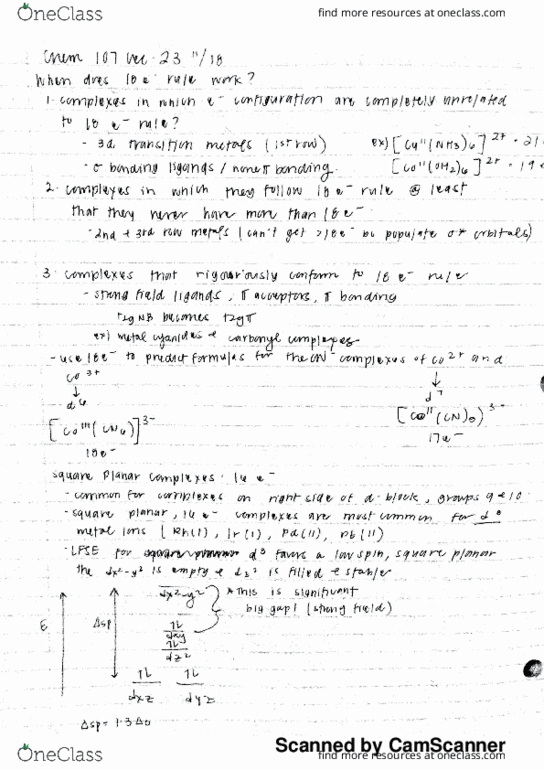 OneClass
find more resources at oneclass.com
Chem 107 Lec 23 11/18
When does 18 e⁻ rule work?
1. complexes in which e⁻ configuration are completely unrelated
to 18 e⁻ rule?
- 3d transition metals (1st row)
ex) [Cu^II(NH3)6]^2+ · 21
- σ bonding ligands / none π bonding.
[Co^II(OH2)6]^2+ · 19 e
2. complexes in which they follow 18 e⁻ rule @ least
that they never have more than 18 e⁻
- 2nd + 3rd row metals (can't get >18e⁻ bc populate σ* orbitals)
3. complexes that rigouriously conform to 18 e⁻ rule
- strong field ligands, π acceptors, π bonding
t2g NB becomes t2g π
ex) metal cyanides & carbonyl complexes
- use 18e⁻ to predict formulas for the CN⁻ complexes of Co^2+ and
Co^3+
↓ ↓
d^6 d^7
[Co^III(CN6)]^3- [Co^II(CN)5)^3-
18e⁻ 17e⁻
square planar complexes: 16 e⁻
- common for complexes on right side of d-block, groups 9 & 10
- square planar, 16 e⁻ complexes are most common for d^8
metal ions [Rh(I), Ir(I), Pd(II), Pt(II)
- LFSE for d^8 favors a low spin, square planar
the dx²-y² is empty & dz² is filled & stable
dx²-y² * this is significant
big gap! (strong field)
E Δsp
1L
dxy
1L
dz²
1L 1L
dxz dyz
Δsp = 1.3 Δo
Scanned by CamScanner
OneClass
find more resources at oneclass.com